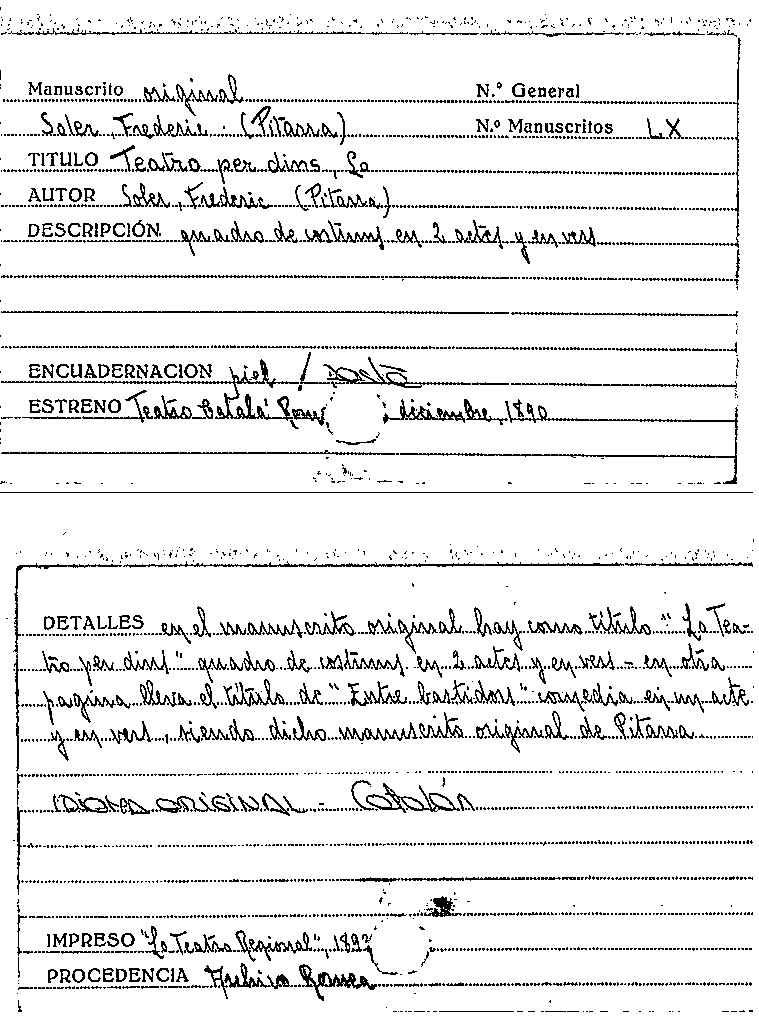 Manuscrito original N.º General
Soler, Frederic. (Pitarra) N.º Manuscritos LX
TITULO Teatro per dins, Lo
AUTOR Soler, Frederic (Pitarra)
DESCRIPCIÓN quadro de costums en 2 actes y en vers
ENCUADERNACION piel /
ESTRENO Teatro Català diciembre, 1890
DETALLES en el manuscrito original hay como título "Lo Tea-
tro per dins" quadro de costums en 2 actes y en vers - en otra
pagina lleva el título de "Entre bastidors" comedia en un acte
y en vers, siendo dicho manuscrito original de Pitarra
IDIOMA ORIGINAL - Catalán
IMPRESO "Lo Teatro Regional", 1892
PROCEDENCIA Archivo Romea